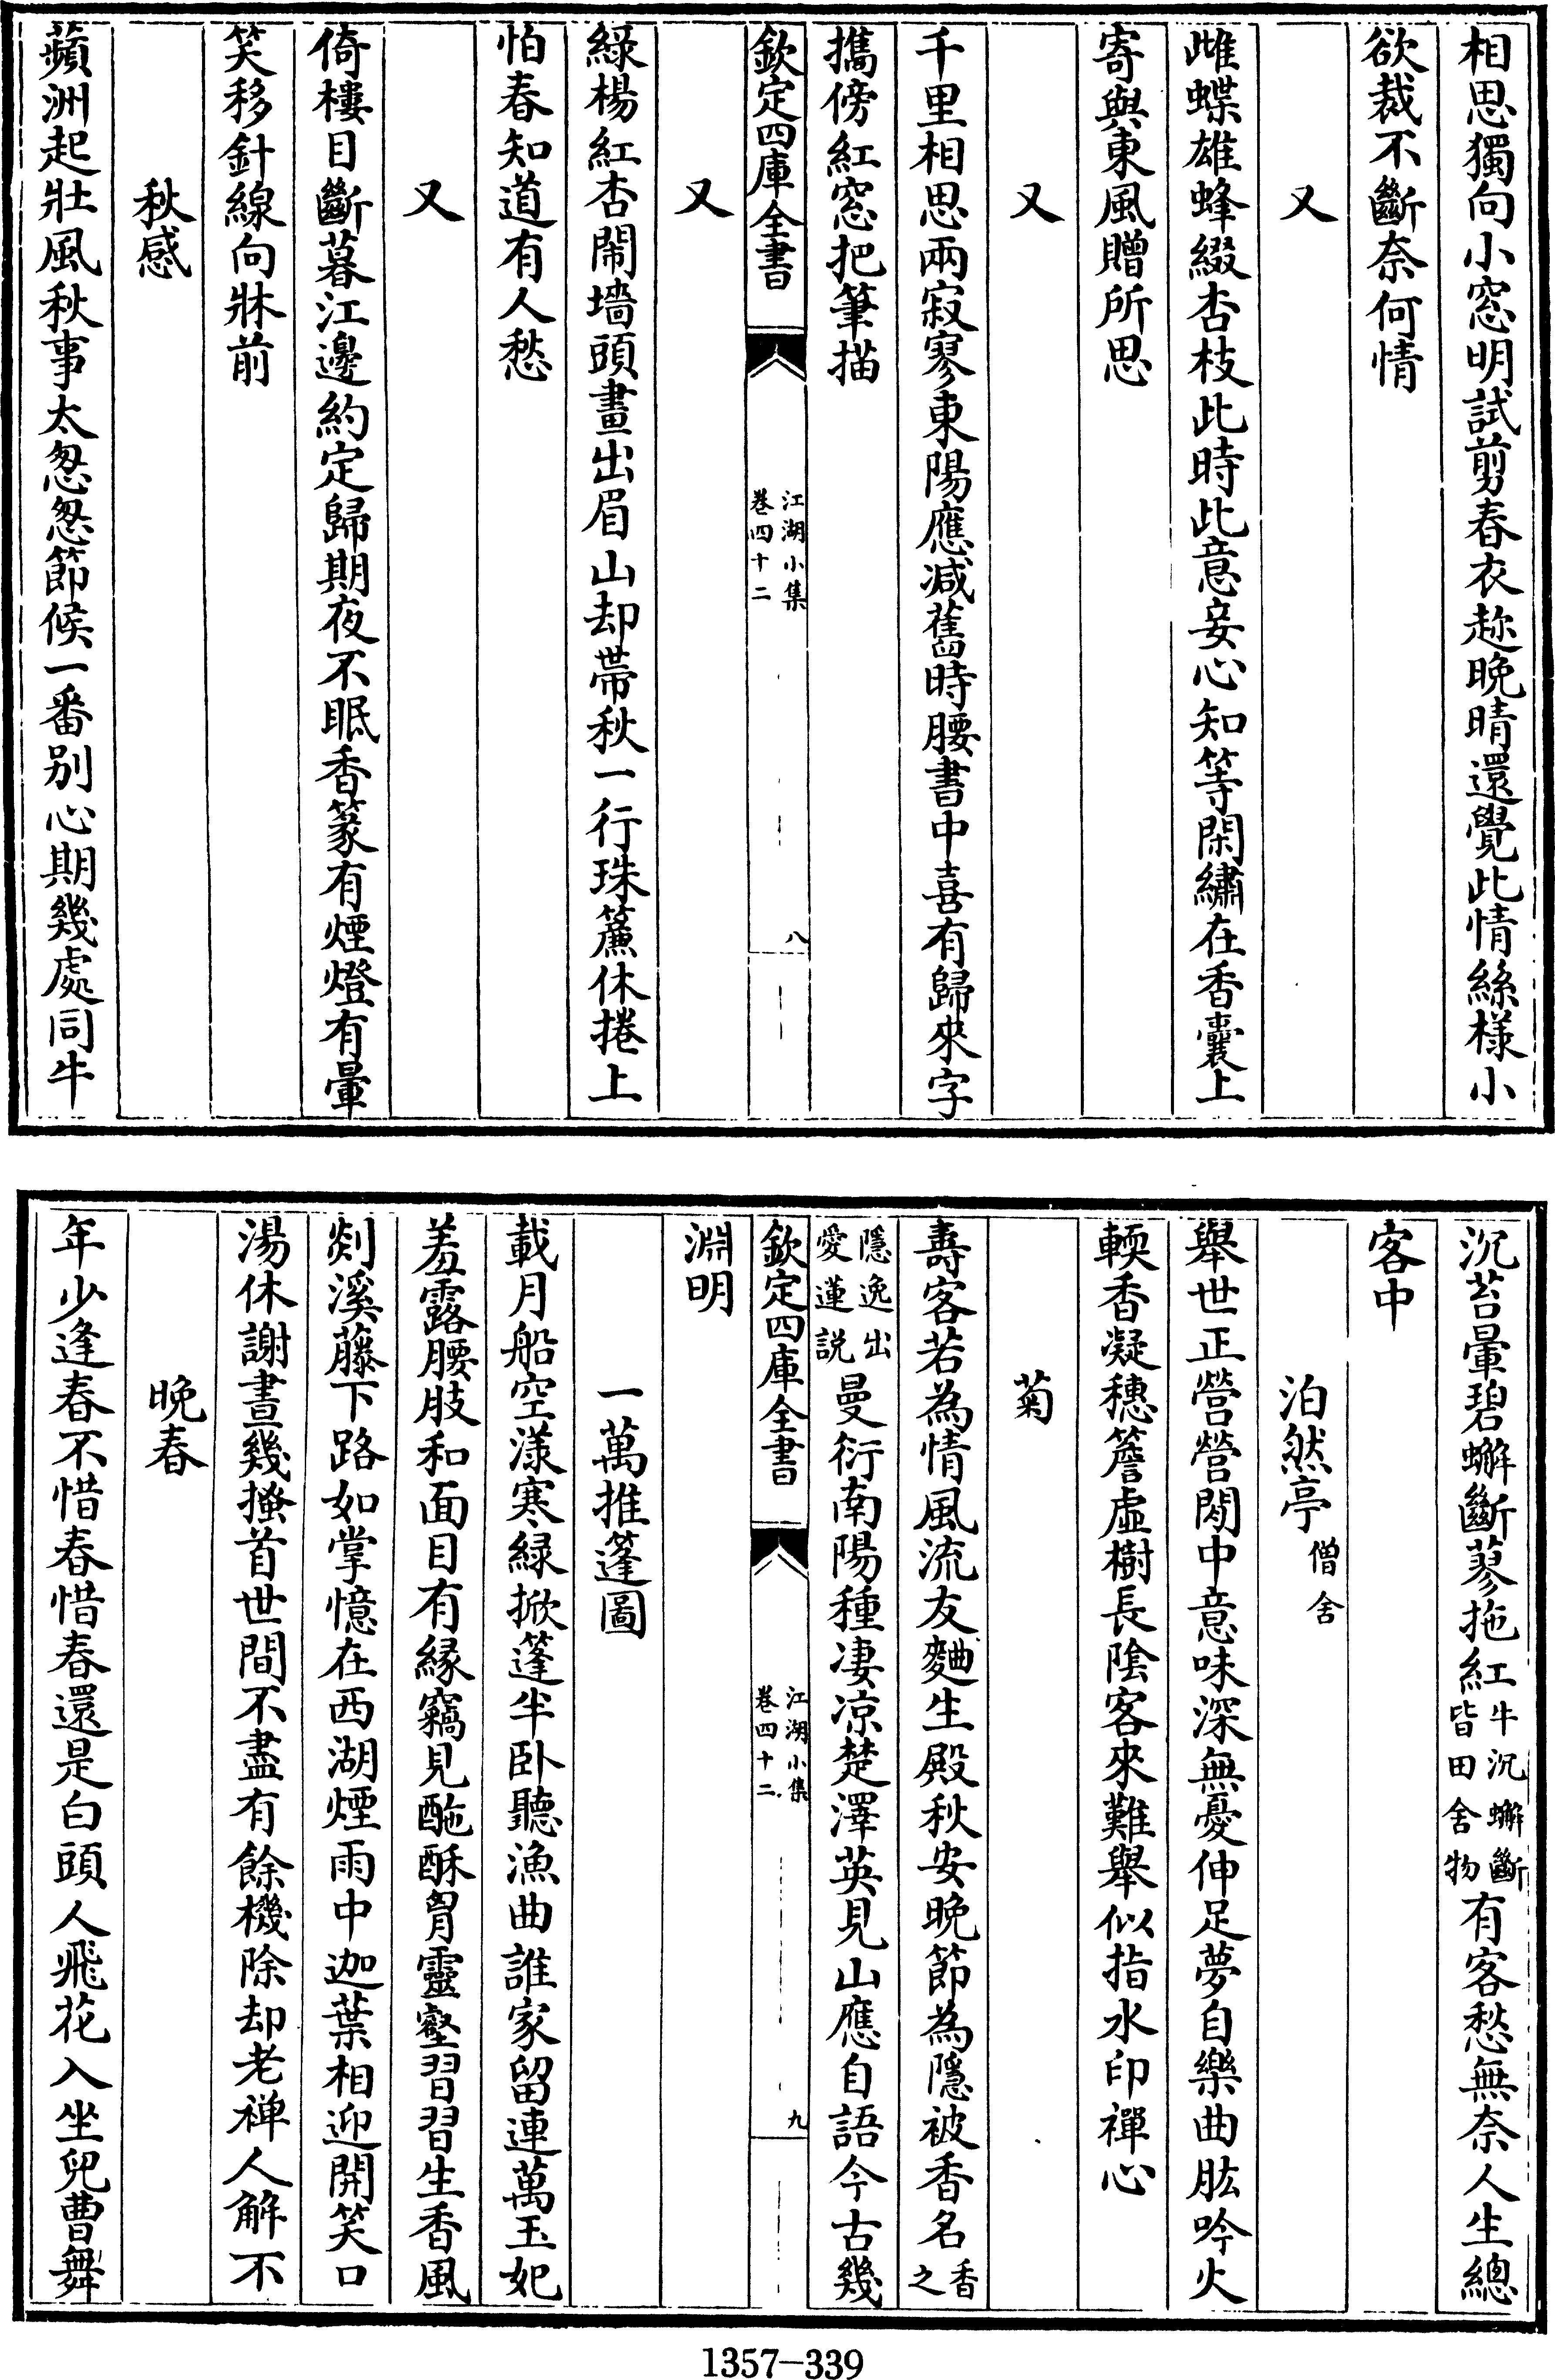 相思獨向小窓明試剪春衣趂晚晴還覺此情絲様小
欲裁不斷奈何情
又
雌蝶雄蜂綴杏枝此時此意妾心知等閑繡在香囊上
寄與東風贈所思
又
千里相思兩寂寥東陽應减舊時腰書中喜有歸來字
擕傍紅窓把筆描
欽定四庫全書
江湖小集
卷四十二
八
又
綠楊紅杏鬧墻頭畫出眉山却帶秋一行珠簾休捲上
怕春知道有人愁
又
倚樓目斷暮江邊約定歸期夜不眠香篆有煙燈有暈
笑移針線向牀前
秋感
蘋洲起壯風秋事太怱怱節候一番別心期幾處同牛
沉苔暈碧蠏斷蓼拖紅牛沉蠏斷皆田舍物有客愁無奈人生總
客中
泊然亭僧舍
舉世正營營閒中意味深無憂伸足夢自樂曲肱吟火
輭香凝穗簷虛樹長陰客來難舉似指水印禪心
菊
壽客若為情風流友麯生殿秋安晚節為隱被香名香之
隱逸出愛蓮説曼衍南陽種凄凉楚澤英見山應自語今古幾
欽定四庫全書
江湖小集
卷四十二
九
淵明
一萬推篷圖
載月船空漾寒綠掀篷半卧聽漁曲誰家留連萬玉妃
羞露腰肢和面目有緣竊見酏酥胷靈壑習習生香風
剡溪藤下路如掌憶在西湖煙雨中迦葉相迎開笑口
湯休謝晝幾搔首世間不盡有餘機除却老禅人解不
晚春
年少逢春不惜春惜春還是白頭人飛花入坐兒曹舞
1357-339